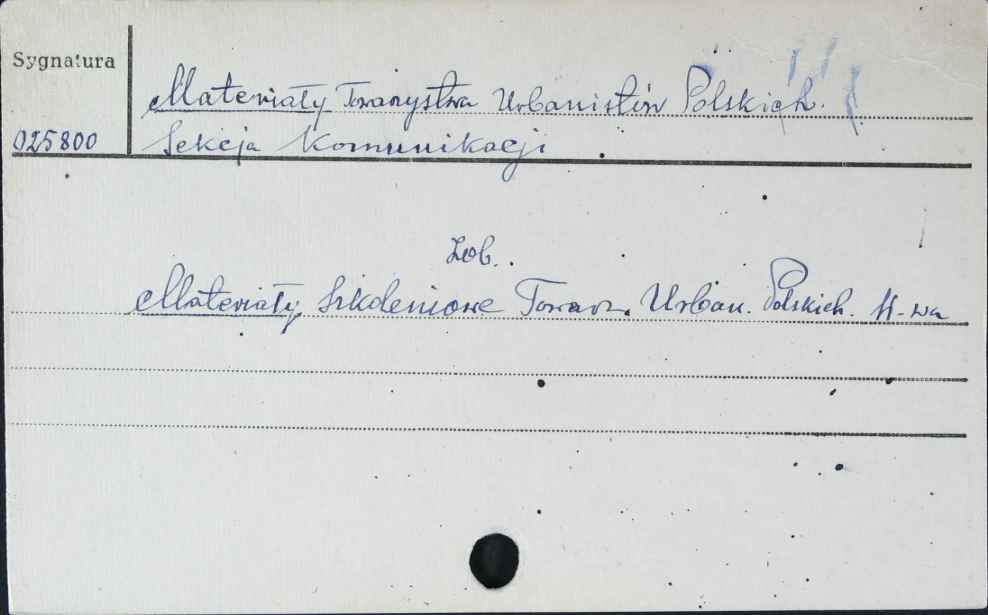 Sygnatura
Materiały Towarzystwa Urbanistów Polskich.
025800 Sekcja Komunikacji
Zob.
Materiały Szkoleniowe Towarz. Urban. Polskich. W-wa